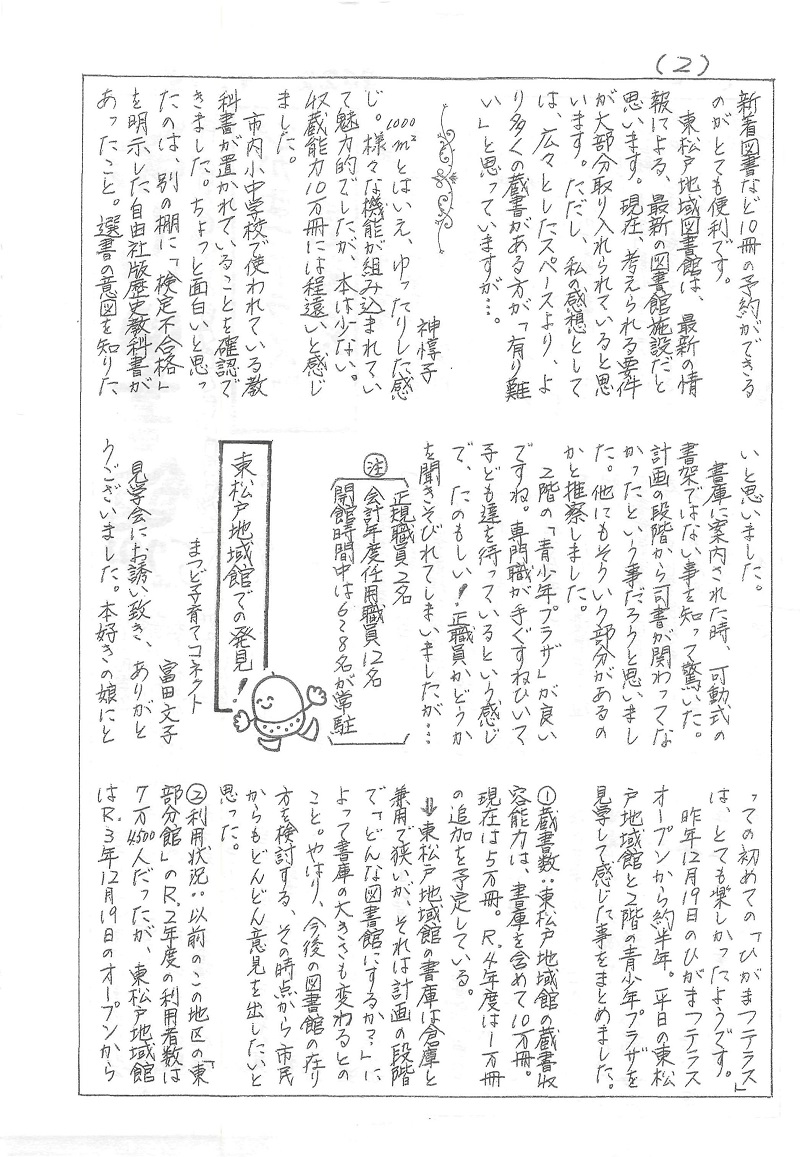 (2)
新着図書など10冊の予約ができる
のがとても便利です。
東松戸地域図書館は、最新の情
報による、最新の図書館施設だと
思います。現在、考えられる要件
が大部分取り入れられていると思
います。ただし、私の感想として
は、広々としたスペースより、よ
り多くの蔵書がある方が「有り難
い」と思っていますが…。
神惇子
1000m²とはいえ、ゆったりした感
じ。様々な機能が組み込まれてい
て魅力的でしたが、本は少ない。
収蔵能力10万冊には程遠いと感じ
ました。
市内小中学校で使われている教
科書が置かれていることを確認で
きました。ちょっと面白いと思っ
たのは、別の棚に「検定不合格」
を明示した自由社版歴史教科書が
あったこと。選書の意図を知りた
いと思いました。
書庫に案内された時、可動式の
書架ではない事を知って驚いた。
計画の段階から司書が関わってな
かったという事だろうと思いまし
た。他にもそういう部分があるの
かと推察しました。
2階の「青少年プラザ」が良い
ですね。専門職が手ぐすねひいて
子ども達を待っているという感じ
で、たのもしい!正職員かどうか
を聞きそびれてしまいましたが…
注
正規職員2名
会計年度任用職員12名
開館時間中は6~8名が常駐
東松戸地域館での発見!
まつど子育てコネクト
富田文子
見学会にお誘い致き、ありがと
うございました。本好きの娘にと
っての初めての「ひがまつテラス」
は、とても楽しかったようです。
昨年12月19日のひがまつテラス
オープンから約半年。平日の東松
戸地域館と2階の青少年プラザを
見学して感じた事をまとめました。
①蔵書数:東松戸地域館の蔵書収
容能力は、書庫を含めて10万冊。
現在は5万冊。R.4年度は1万冊
の追加を予定している。
⇒東松戸地域館の書庫は倉庫と
兼用で狭いが、それは計画の段階
で「どんな図書館にするか?」に
よって書庫の大きさも変わるとの
こと。やはり、今後の図書館の在り
方を検討する、その時点から市民
からもどんどん意見を出したいと
思った。
②利用状況:以前のこの地区の「東
部分館」のR.2年度の利用者数は
7万4500人だったが、東松戸地域館
はR.3年12月19日のオープンから